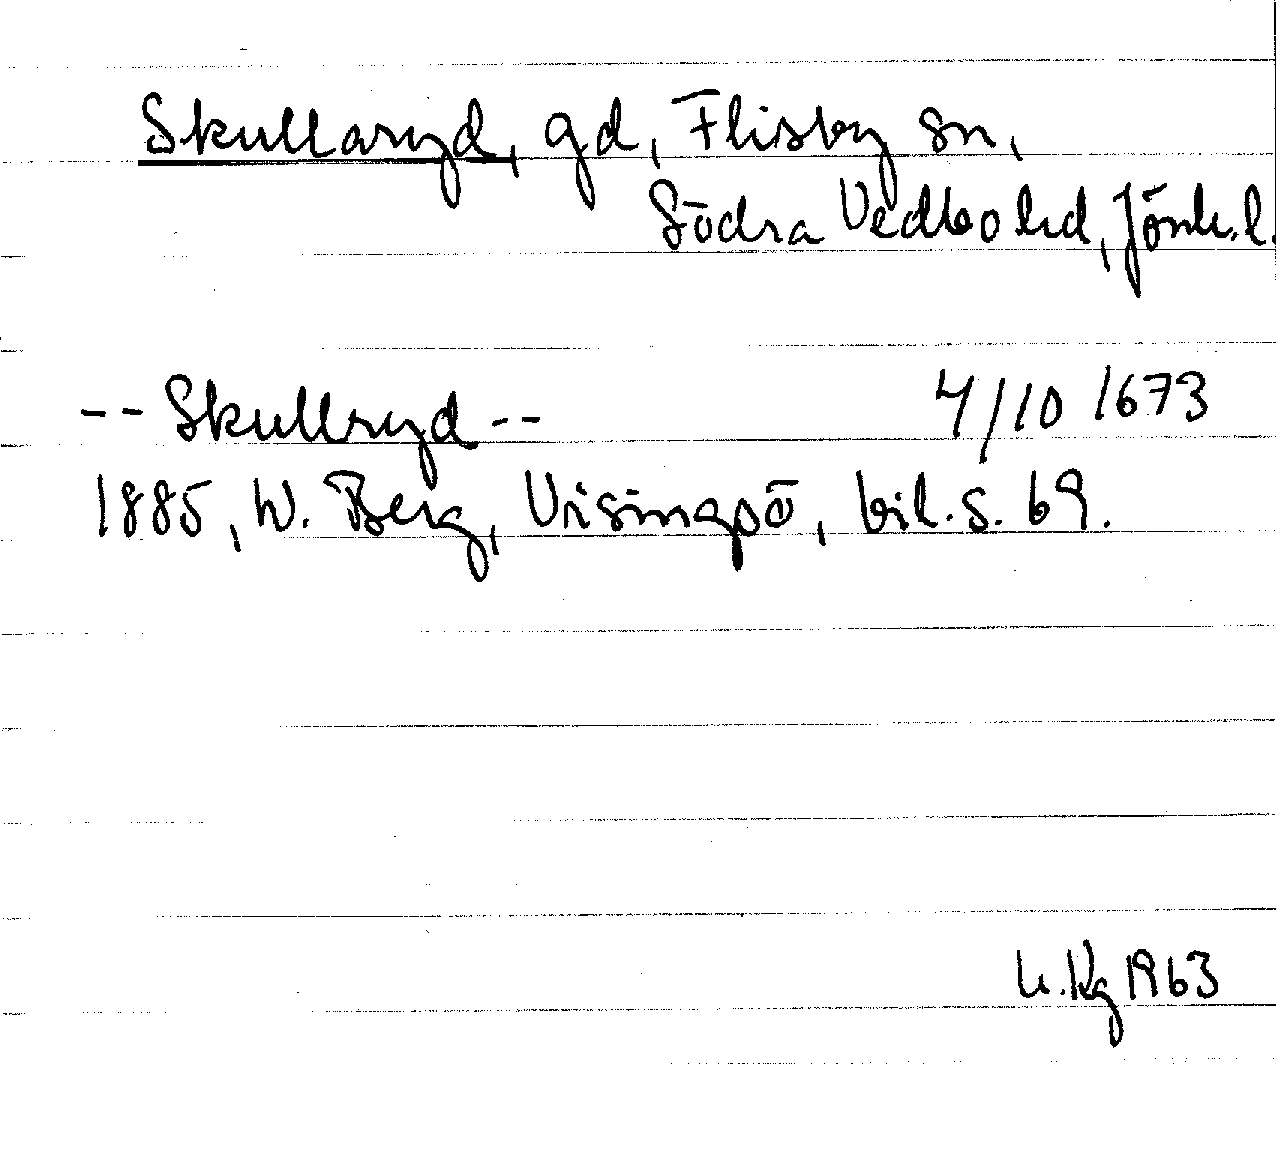 Skullaryd, gd, Flisby sn,
Södra Vedbo hd, Jönk.l.
-- Skullryd -- 4/10 1673
1885, W. Berg, Visingsö, bil. s. 69.
K.Kg 1963